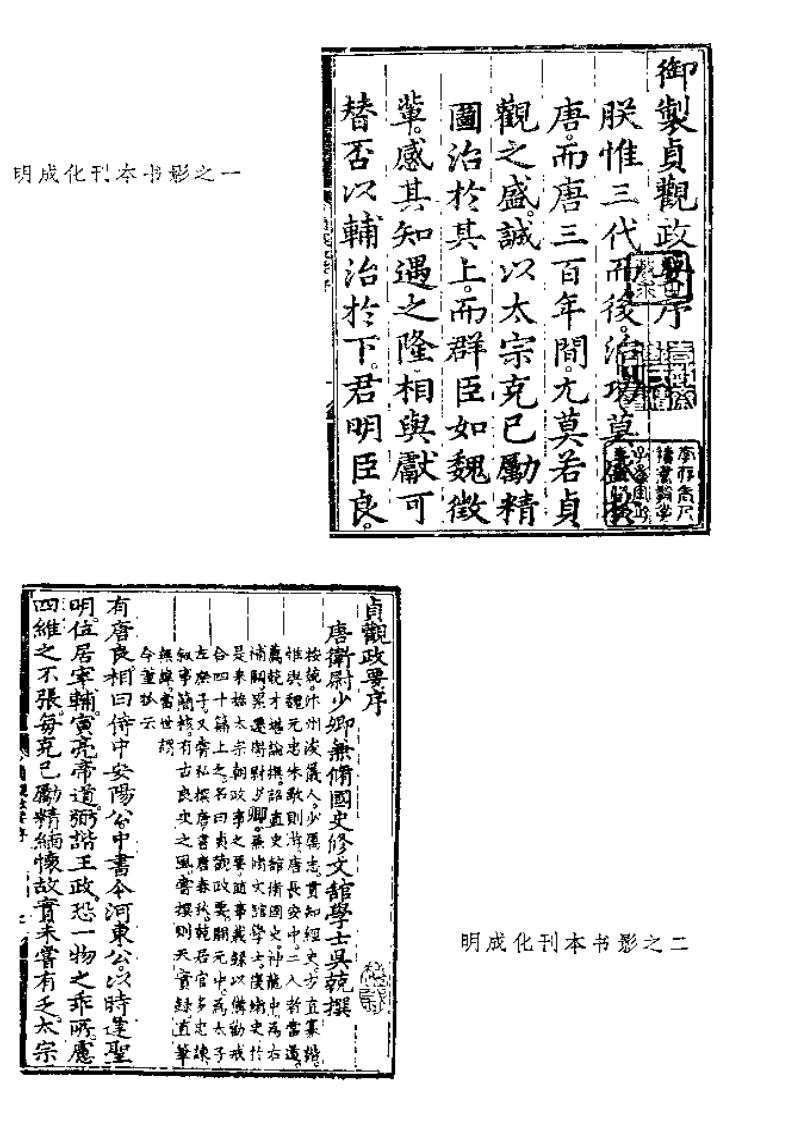 明成化刊本书影之一
御製貞觀政要序
朕惟三代而後。治功莫盛於
唐。而唐三百年間。尤莫若貞
觀之盛。誠以太宗克己勵精
圖治於其上。而群臣如魏徵
輩。感其知遇之隆。相與獻可
替否以輔治於下。君明臣良。
貞觀政要序
唐衛尉少卿兼脩國史修文舘學士吳兢撰
按兢。汴州浚儀人。少厲志。貫知經史。方直寡諧。
惟與魏元忠朱敬則游。唐長安中。二人者當道。
薦兢才堪論撰。詔直史舘脩國史。神龍中。為右
補闕。累遷衛尉少卿。兼脩文舘學士。復脩史於
是采摭太宗朝政事之要。随事載録。以備勸戒
合四十篇上之。名曰貞觀政要。開元中。為太子
左庶子。又嘗私撰唐書唐春秋。兢居官多忠諫
叙事簡核。有古良史之風。嘗撰則天實録。直筆
無諱。當世謂
今董狐云
有唐良相曰侍中安陽公中書令河東公。以時逢聖
明。位居宰輔。寅亮帝道。弼諧王政。恐一物之乖所。慮
四維之不張。每克己勵精。緬懷故實。未嘗有乏。太宗
明成化刊本书影之二